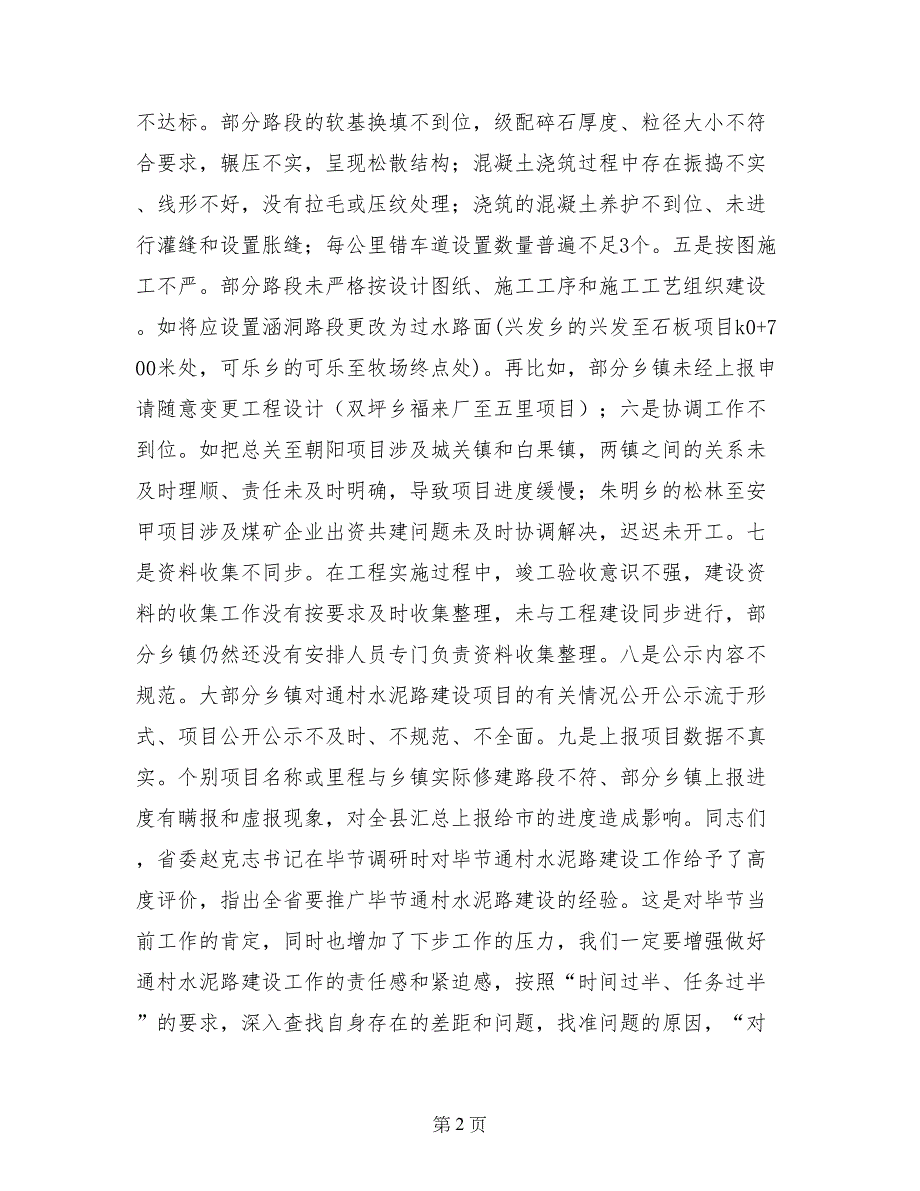 不达标。部分路段的软基换填不到位，级配碎石厚度、粒径大小不符
合要求，辗压不实，呈现松散结构；混凝土浇筑过程中存在振捣不实
、线形不好，没有拉毛或压纹处理；浇筑的混凝土养护不到位、未进
行灌缝和设置胀缝；每公里错车道设置数量普遍不足3个。五是按图施
工不严。部分路段未严格按设计图纸、施工工序和施工工艺组织建设
。如将应设置涵洞路段更改为过水路面(兴发乡的兴发至石板项目k0+7
00米处，可乐乡的可乐至牧场终点处)。再比如，部分乡镇未经上报申
请随意变更工程设计（双坪乡福来厂至五里项目）；六是协调工作不
到位。如把总关至朝阳项目涉及城关镇和白果镇，两镇之间的关系未
及时理顺、责任未及时明确，导致项目进度缓慢；朱明乡的松林至安
甲项目涉及煤矿企业出资共建问题未及时协调解决，迟迟未开工。七
是资料收集不同步。在工程实施过程中，竣工验收意识不强，建设资
料的收集工作没有按要求及时收集整理，未与工程建设同步进行，部
分乡镇仍然还没有安排人员专门负责资料收集整理。八是公示内容不
规范。大部分乡镇对通村水泥路建设项目的有关情况公开公示流于形
式、项目公开公示不及时、不规范、不全面。九是上报项目数据不真
实。个别项目名称或里程与乡镇实际修建路段不符、部分乡镇上报进
度有瞒报和虚报现象，对全县汇总上报给市的进度造成影响。同志们
，省委赵克志书记在毕节调研时对毕节通村水泥路建设工作给予了高
度评价，指出全省要推广毕节通村水泥路建设的经验。这是对毕节当
前工作的肯定，同时也增加了下步工作的压力，我们一定要增强做好
通村水泥路建设工作的责任感和紧迫感，按照“时间过半、任务过半
”的要求，深入查找自身存在的差距和问题，找准问题的原因，“对
第 2 页